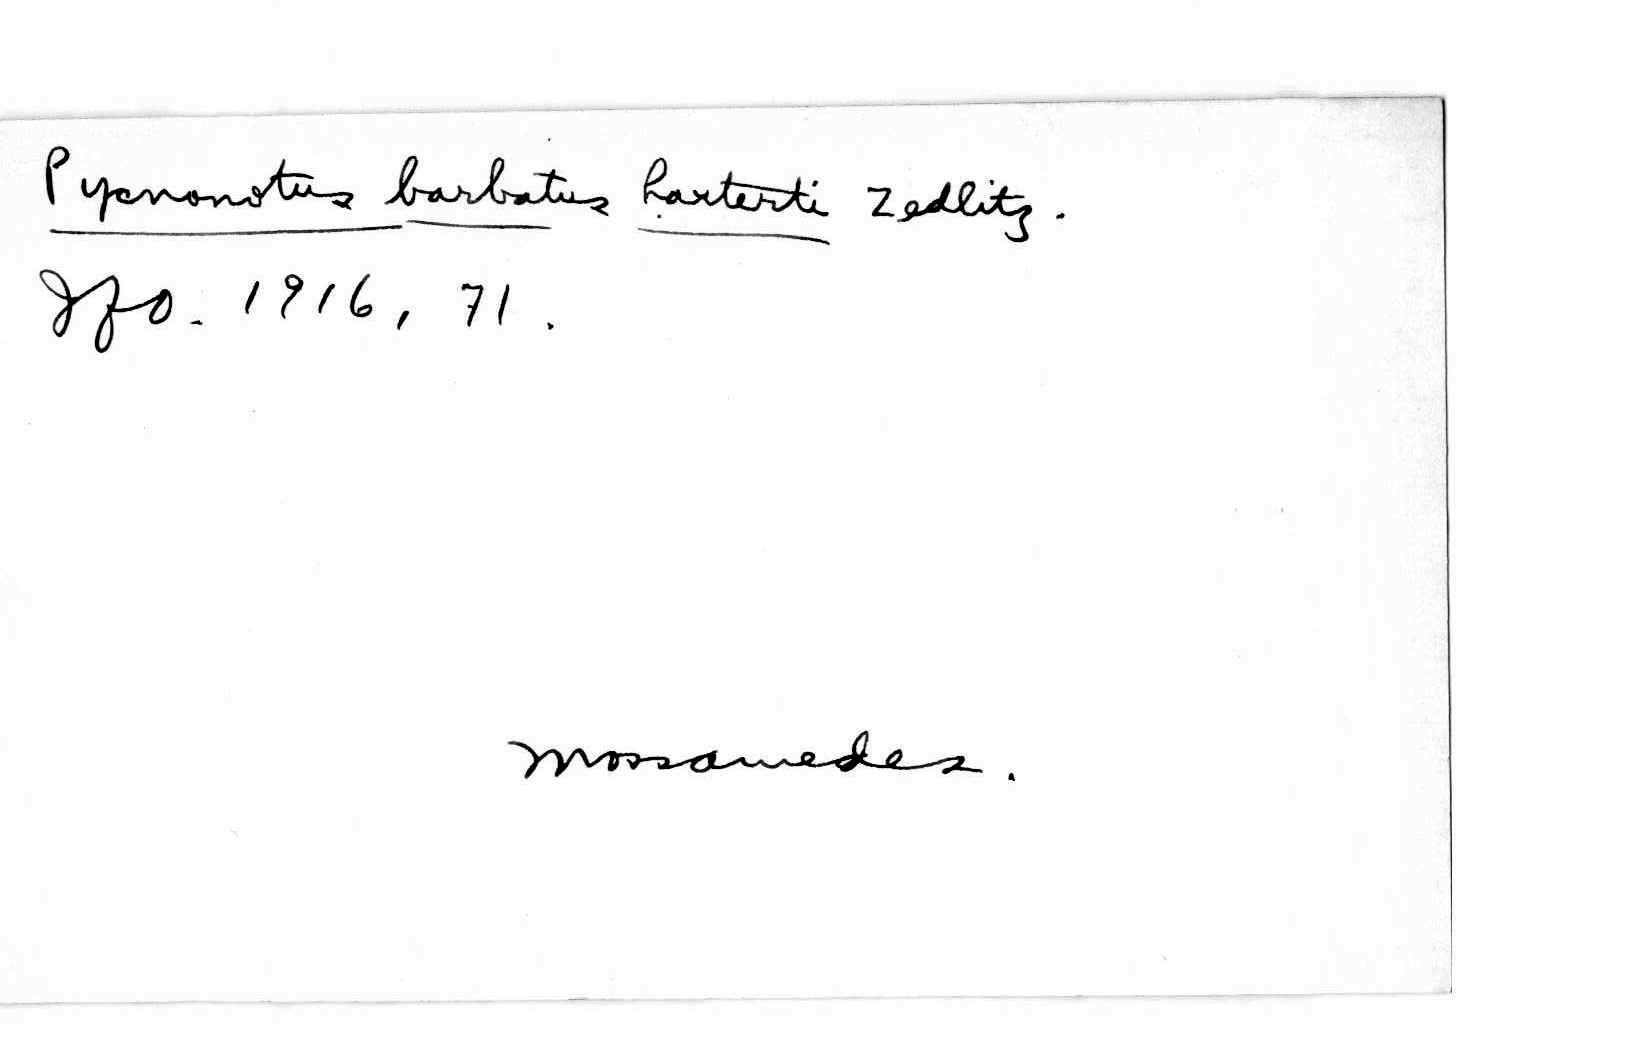 Pycnonotus barbatus harterti Zedlitz.
JfO. 1916, 71.
Mossamedes.